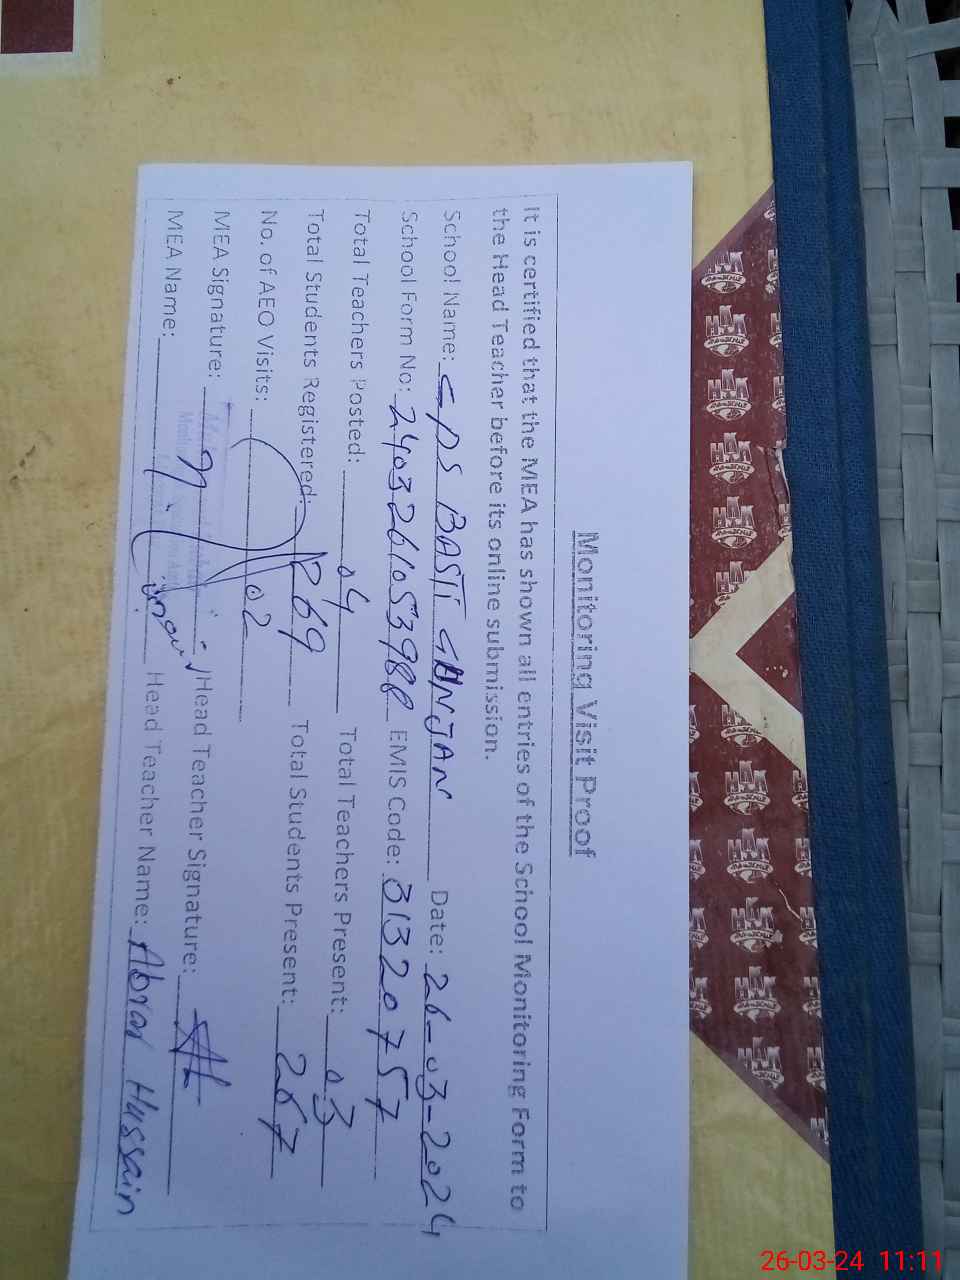 Monitoring Visit Proof
It is certified that the MEA has shown all entries of the School Monitoring Form to
the Head Teacher before its online submission.
School Name: GPS BASTI GANJAN Date: 26-03-2024
School Form No: 2403261053988 EMIS Code: 31320757
Total Teachers Posted: 04 Total Teachers Present: 03
Total Students Registered: 269 Total Students Present: 267
No. of AEO Visits: 02
MEA Signature: Head Teacher Signature:
MEA Name: Head Teacher Name: Abrar Hussain
26-03-24 11:11